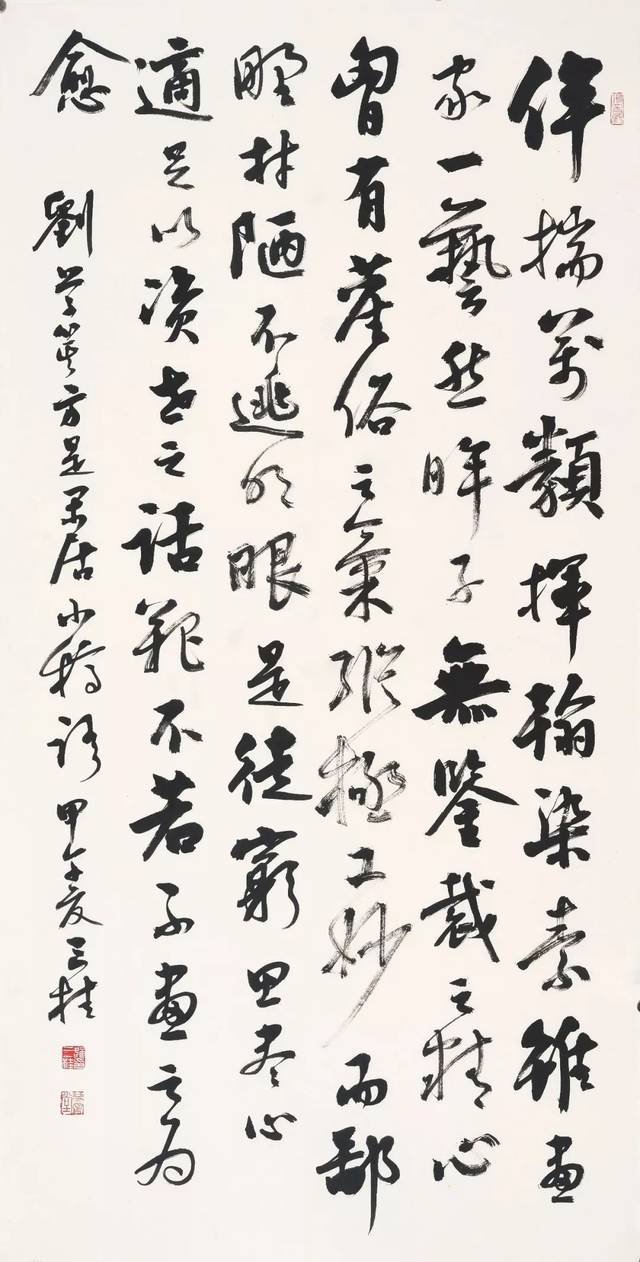 侔揣萬類揮翰染素雖畫
家一藝然眸子無鑒裁之精心
胷有塵俗之氣縱極工妙而鄙
野村陋不逃明眼是徒窮思盡心
適足以資世之話靶不若不畫之為
愈 劉學箕方是閑居小稿語 甲午夏三桂